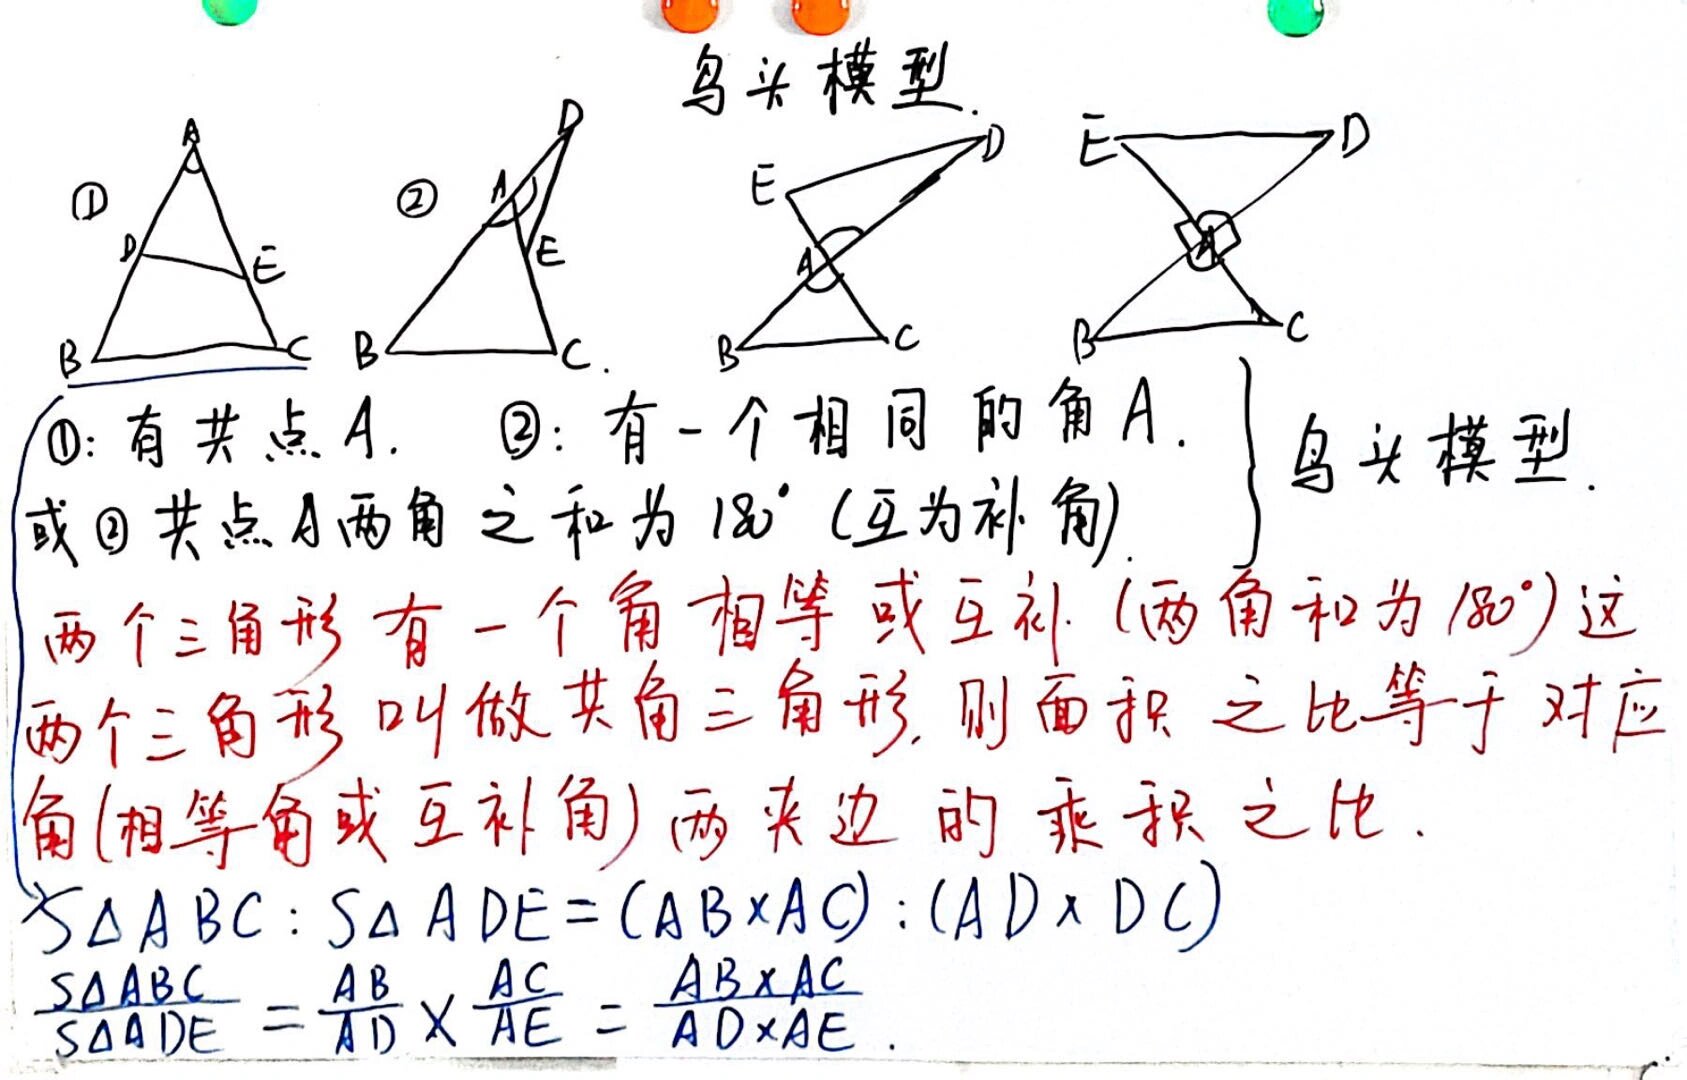 鸟头模型.
① A D E B C
② D A E B C.
E D A B C
E D A B C
①: 有共点A. ②: 有一个相同的角A.
或②共点A两角之和为180°(互为补角).
鸟头模型.
两个三角形有一个角相等或互补.(两角和为180°)这
两个三角形叫做共角三角形,则面积之比等于对应
角(相等角或互补角)两夹边的乘积之比.
S△ABC:S△ADE=(AB×AC):(AD×DC)
S△ABC/S△ADE=AB/AD×AC/AE=AB×AC/AD×AE.